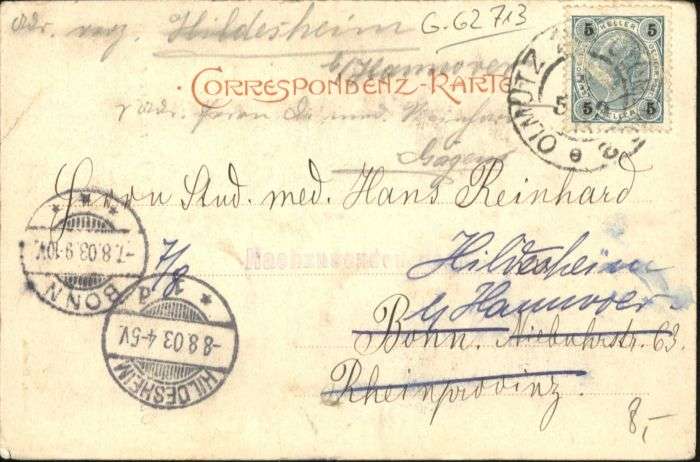 Adr. verz. Hildesheim
G.62713
b/Hannover
CORRESPONDENZ-KARTE
Adr. Frau Dr. med. Reinhard
5 HELLER 5
5 5
OLMÜTZ
Herrn Stud. med. Hans Reinhard
BONN
-7.8.03.9-10V.
7/8
Nachzusenden
Hildesheim
b/Hannover
Bonn. Niebuhrstr. 63.
Rheinprovinz.
HILDESHEIM
-8.8.03.4-5V.
8,-